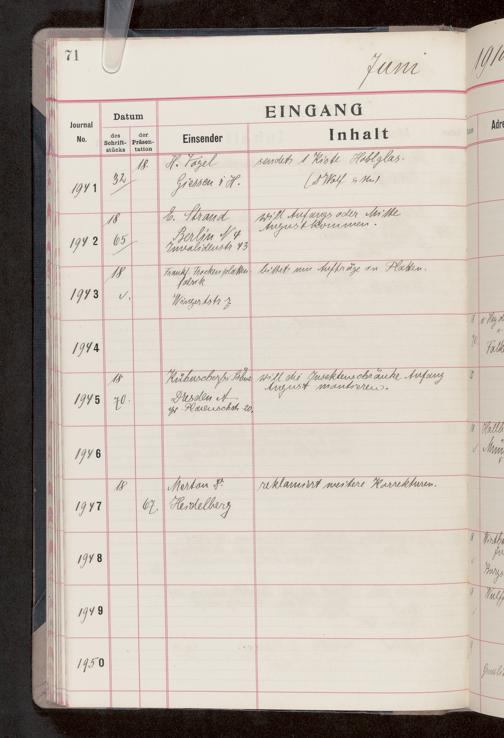 71
Juni
1910
Datum
EINGANG
Journal
No.
des
Schrift-
stücks
der
Präsen-
tation
Einsender
Inhalt
Adre
18.
H. Vogel
sendet 1 Kiste Hohlglas.
1941
32
Giessen i H.
18
E. Strand
will Anfangs oder Mitte
August kommen.
1942
65
Berlin N 4
Invalidenstr 43
18
Frankf. Trockenplatten-
fabrik
bittet um Aufträge in Platten.
1943
1944
18
Kühnscherf & Söhne
will die Insektenschränke Anfang
August montieren.
1945
70.
Dresden A
20.
1946
18
Merton
reklamiert weitere Korrekturen.
1947
67
Heidelberg
1948
1949
1950